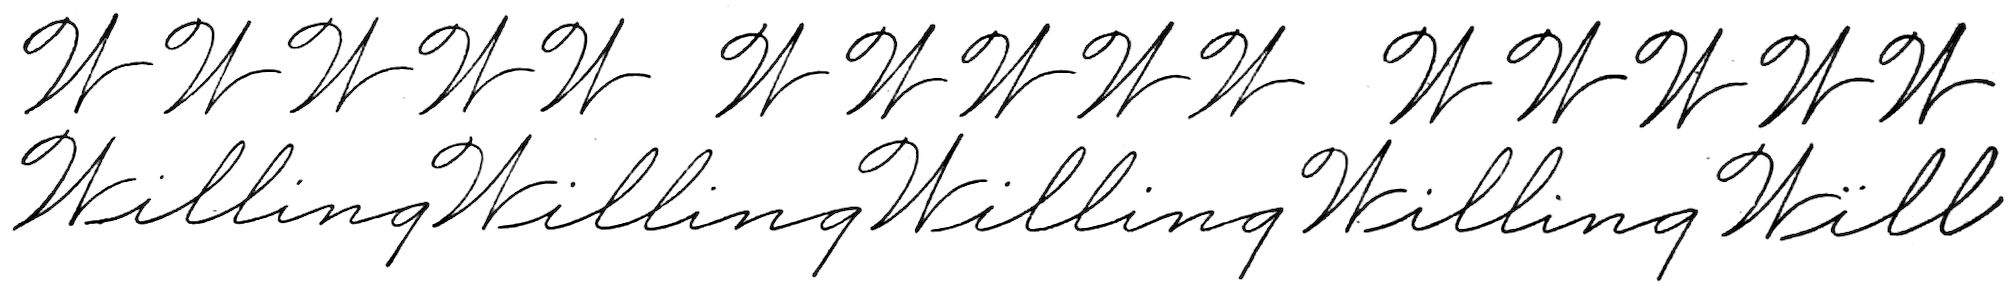 W W W W W W W W W W W W W W W
Willing Willing Willing Willing Will